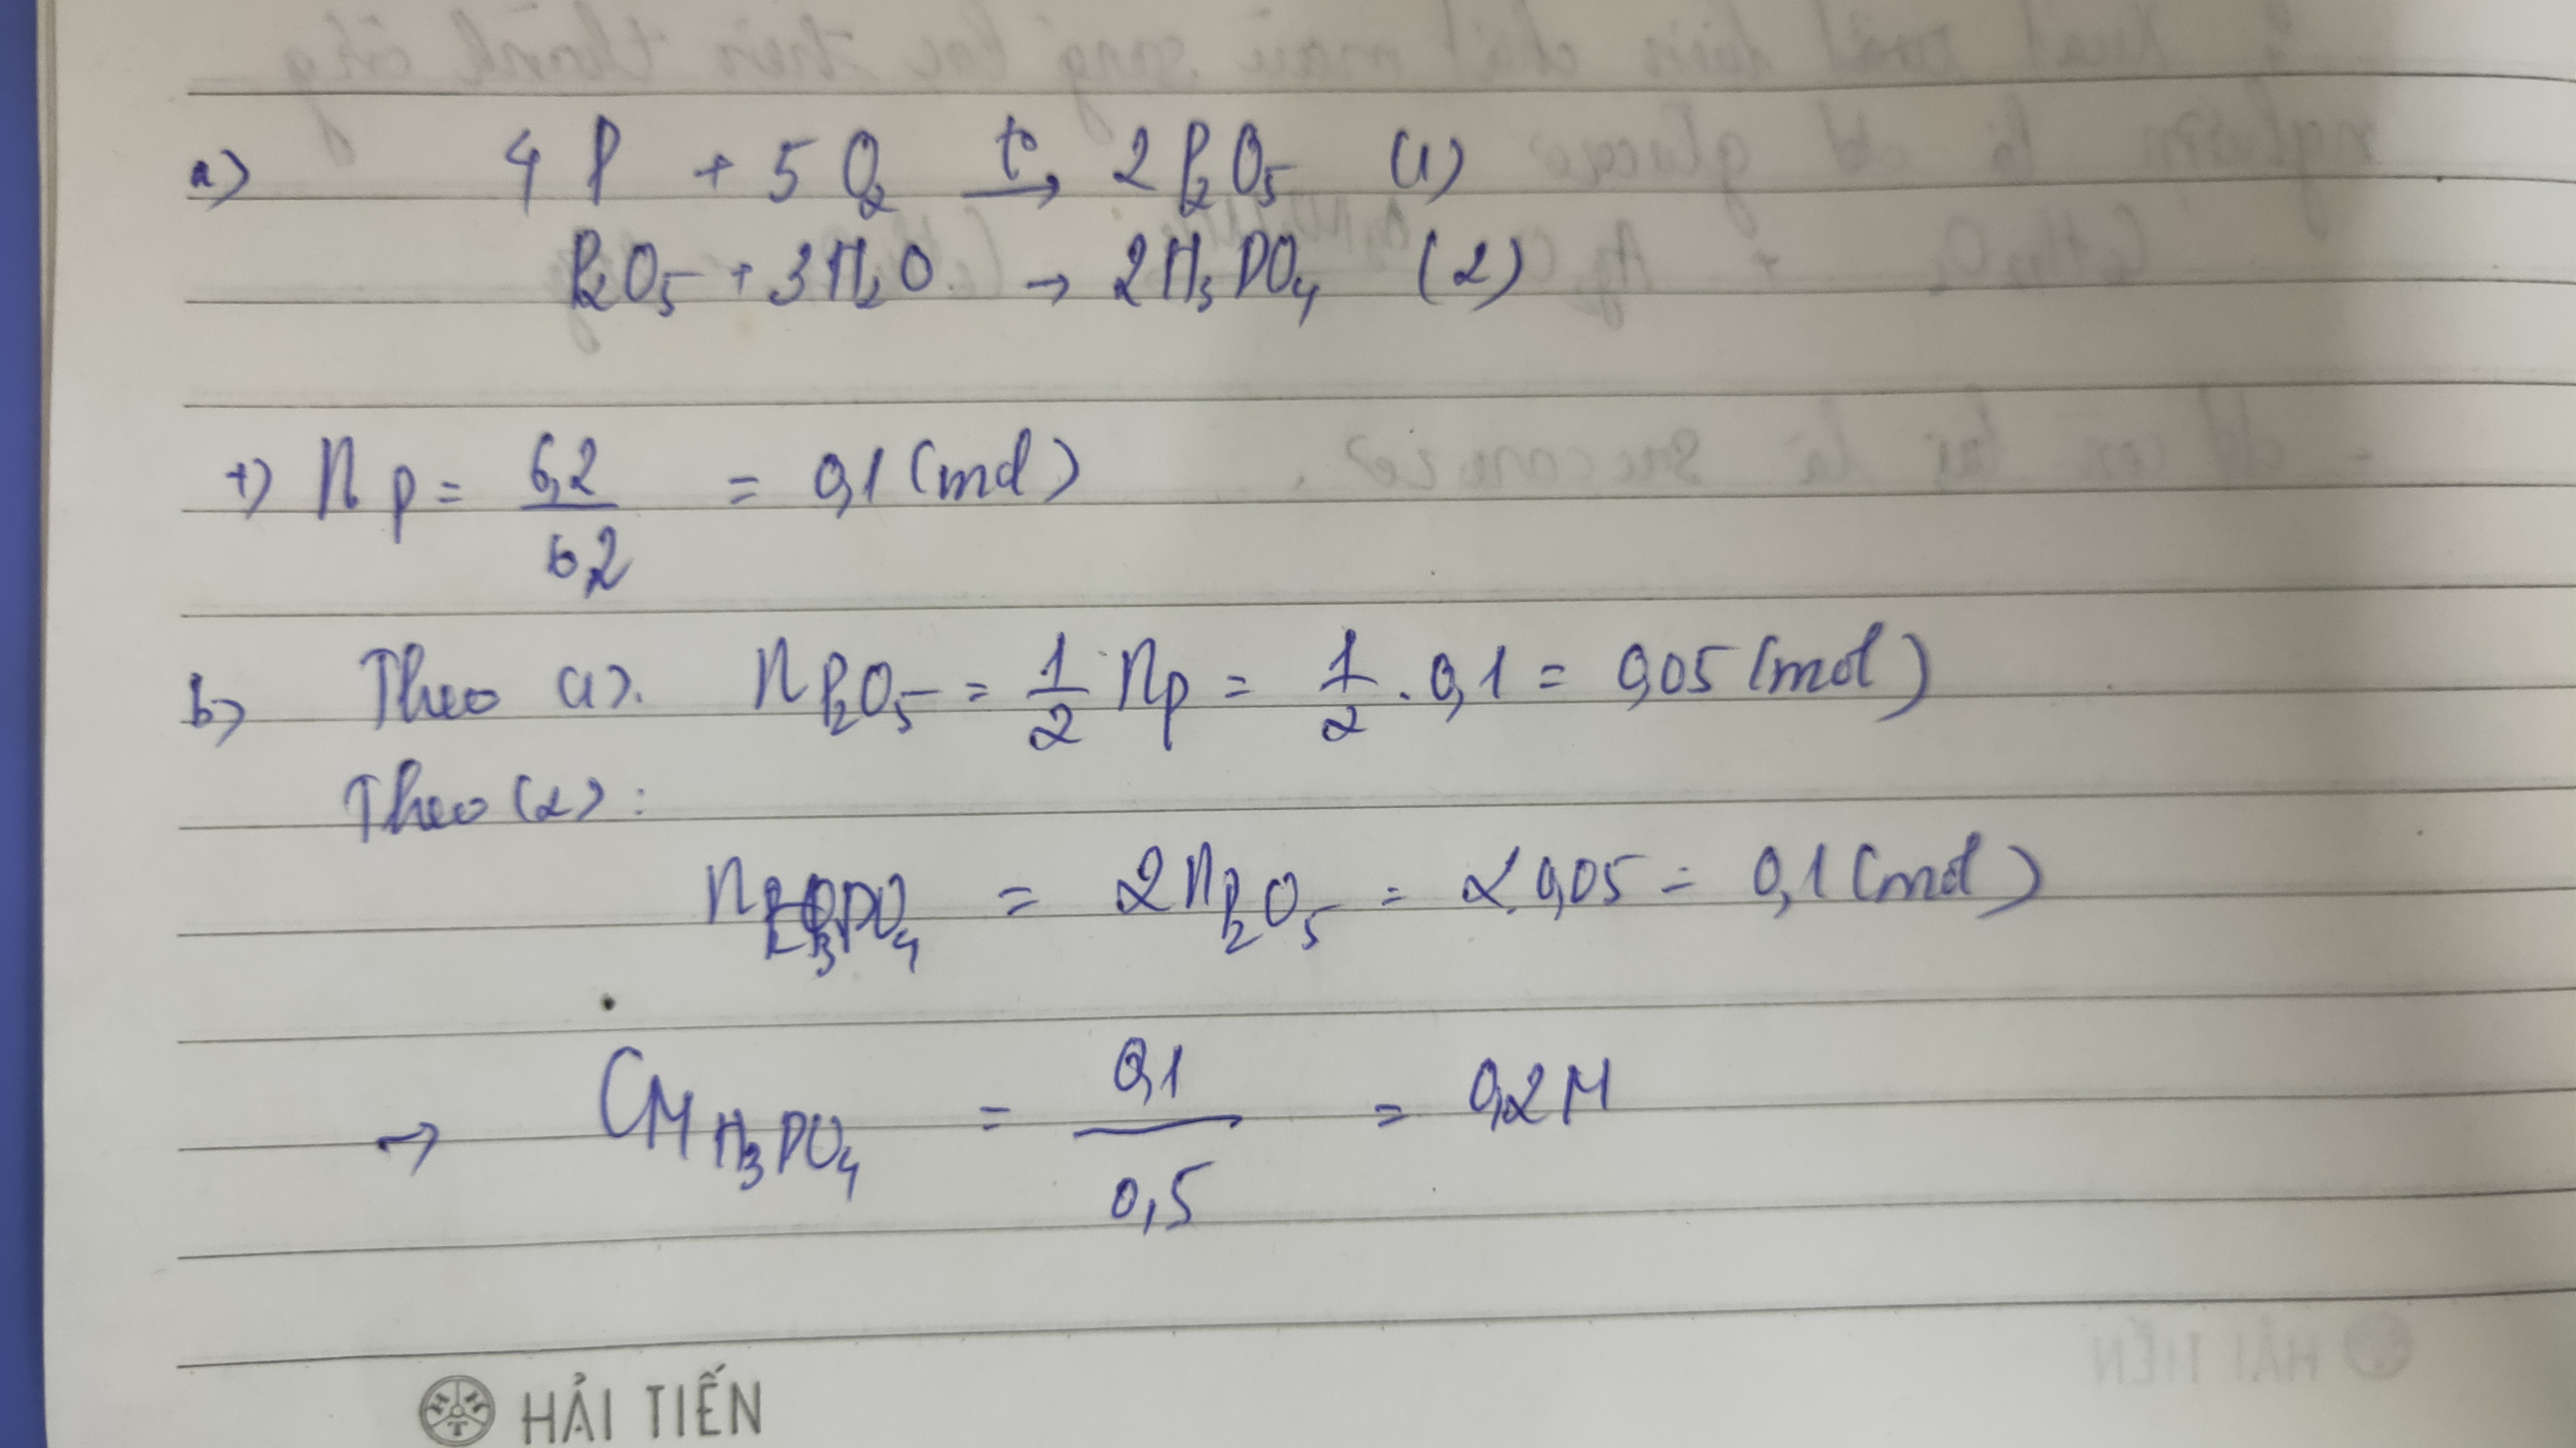 a) 4P + 5O₂ t° → 2P₂O₅ (1)
P₂O₅ + 3H₂O → 2H₃PO₄ (2)
+) nP = 6,2/62 = 0,1 (mol)
b) Theo (1). nP₂O₅ = 1/2 nP = 1/2 . 0,1 = 0,05 (mol)
Theo (2):
nH₃PO₄ = 2nP₂O₅ = 2.0,05 = 0,1 (mol)
→ CM H₃PO₄ = 0,1/0,5 = 0,2M
HẢI TIẾN